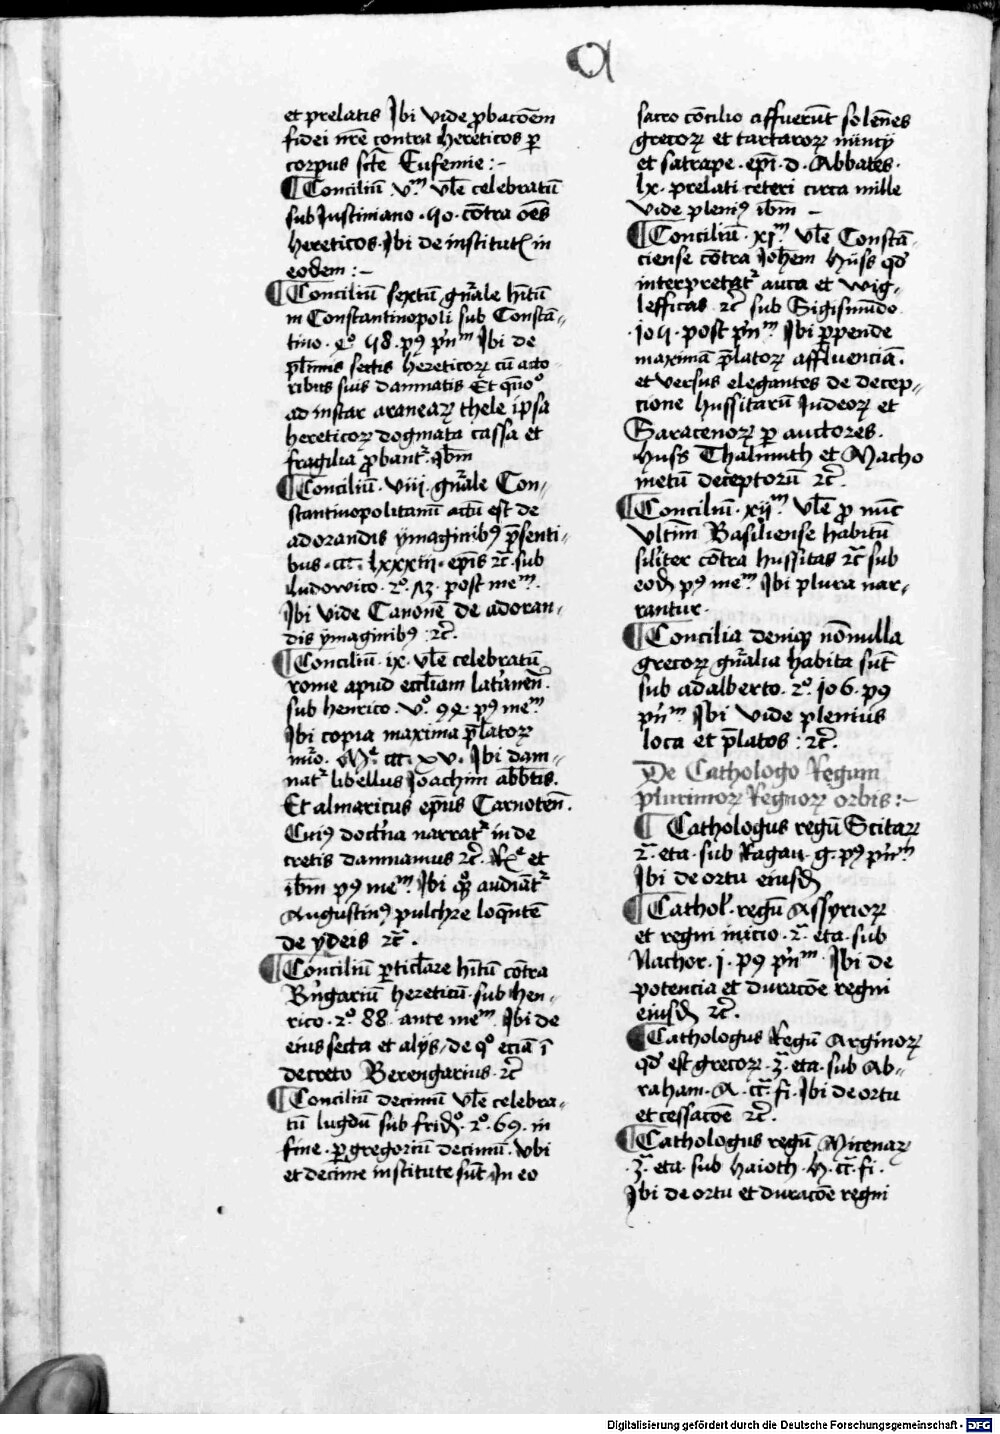 a
et prelatis Ibi vide ꝓbacōem
fidei nr̄e contra hereticos ꝑ
corpus sctē Eufemie :-
¶ Conciliū vᵐ vl̄e celebratū
sub Justiniano · 40 · cōtra oēs
hereticos · Ibi de institut̄ in
eodem :-
¶ Conciliū sextū gn̄ale hītū
in Constantinopoli sub Constā-
tino · 4° · 48 · pꝯ pn̄ᵐ Ibi de
pl̄imis sectis hereticoꝝ cū acto
ribus suis damnatis Et quō°
ad instar araneaꝝ thele ipsa
hereticoꝝ dogmata cassa et
fragilia ꝓbant͛ · ibm̄
¶ Conciliū · viii · gn̄ale Con-
stantinopolitanū actū est de
adorandis ymaginibꝯ p̄senti-
bus · ccc · lxxxiii · ep̄is ⁊c̄ · sub
Ludowico · 2° · 13 · post meᵐ ·
Ibi vide Canonē de adoran-
dis ymaginibꝯ : ⁊c̄ ·
¶ Conciliū · ix · vl̄e celebratū
rome apud eccl̄iam lat̄anen̄ ·
sub henrico · v° · 94 · pꝯ meᵐ
Ibi copia maxima p̄latoꝝ
nūo · Mᵉ ccc · xv · Ibi dam-
nat͛ libellus Joachim abb̄tis ·
Et almaricus ep̄us Carnoten̄ ·
Cuiꝯ doct̄na narrat͛ in de
cretis damnamus ⁊c̄ · Rᵉ et
ibm̄ pꝯ meᵐ Ibi audiāt͛
Augustinꝯ pulchre loquentē
de ydeis ⁊c̄ ·
¶ Conciliū ꝑticl̄are hītū cōtra
Bn̄garium hereticū · sub hen-
rico · 2° · 88 · ante meᵐ Ibi de
eius secta et alijs · de q° eciā ī
decreto Berengarius · ⁊c̄
¶ Conciliū decimū vl̄e celebra-
tū lugdū sub frid° · 2° · 69 · in
fine · ꝑ gregoriū decimū · vbi
et decime institute sūt · In eo
sacro cōcilio affuerūt solēnes
grecoꝝ et tartaroꝝ nūncij
et satrape · ep̄i · d · Abbates ·
lx · prelati ceteri circa mille
vide pleniꝯ ibm̄ -
¶ Conciliū · xiᵐ vl̄e Constā-
ciense cōtra Joh̄em Huss qd̄
interpretat͛ auca et wig-
lefficas ⁊c̄ sub Sigismūdo
· 104 · post pn̄ᵐ Ibi ꝑpende
maximā p̄latoꝝ affluenciā ·
et versus elegantes de decep-
cione hussitarū Iudeoꝝ et
Saracenoꝝ ꝑ auctores ·
Huss Thalmuth et Macho
metū deceptorū ⁊c̄ ·
¶ Conciliū · xijᵐ vl̄e ꝓ nūc
vltim̄ Basiliense habitū
sil̄iter cōtra hussitas ⁊c̄ sub
eod̄ pꝯ meᵐ Ibi plura nar-
rantur ·
¶ Concilia deniqꝫ nōnulla
grecoꝝ gn̄alia habita sūt
sub adalberto · 2° · 106 · pꝯ
pn̄ᵐ Ibi vide plenius
loca et p̄latos : ⁊c̄ ·
De Cathologo Regum
plurimoꝝ Regnoꝝ orbis :-
¶ Cathologus regū Scitaꝝ
2ᵃ eta · sub Ragau · 9 · pꝯ pn̄ᵐ
Ibi de ortu eiusd̄
¶ Cathol̄ · regū Assyrioꝝ
et regni inicio · 2ᵃ · eta · sub
Nachor · 1 · pꝯ pn̄ᵐ Ibi de
potencia et duracōe regni
eiusd̄ ⁊c̄ ·
¶ Cathologus Regū Arginoꝝ
qd̄ est grecoꝝ · 3ᵃ · eta · sub Ab-
raham · A · cc̄ · fi · Ibi de ortu
et cessacōe ⁊c̄ ·
¶ Cathologus regū Micenaꝝ
· 3ᵃ · eta · sub haioth · h · cc̄ · fi ·
Ibi de ortu et duracōe regni
Digitalisierung gefördert durch die Deutsche Forschungsgemeinschaft - DFG